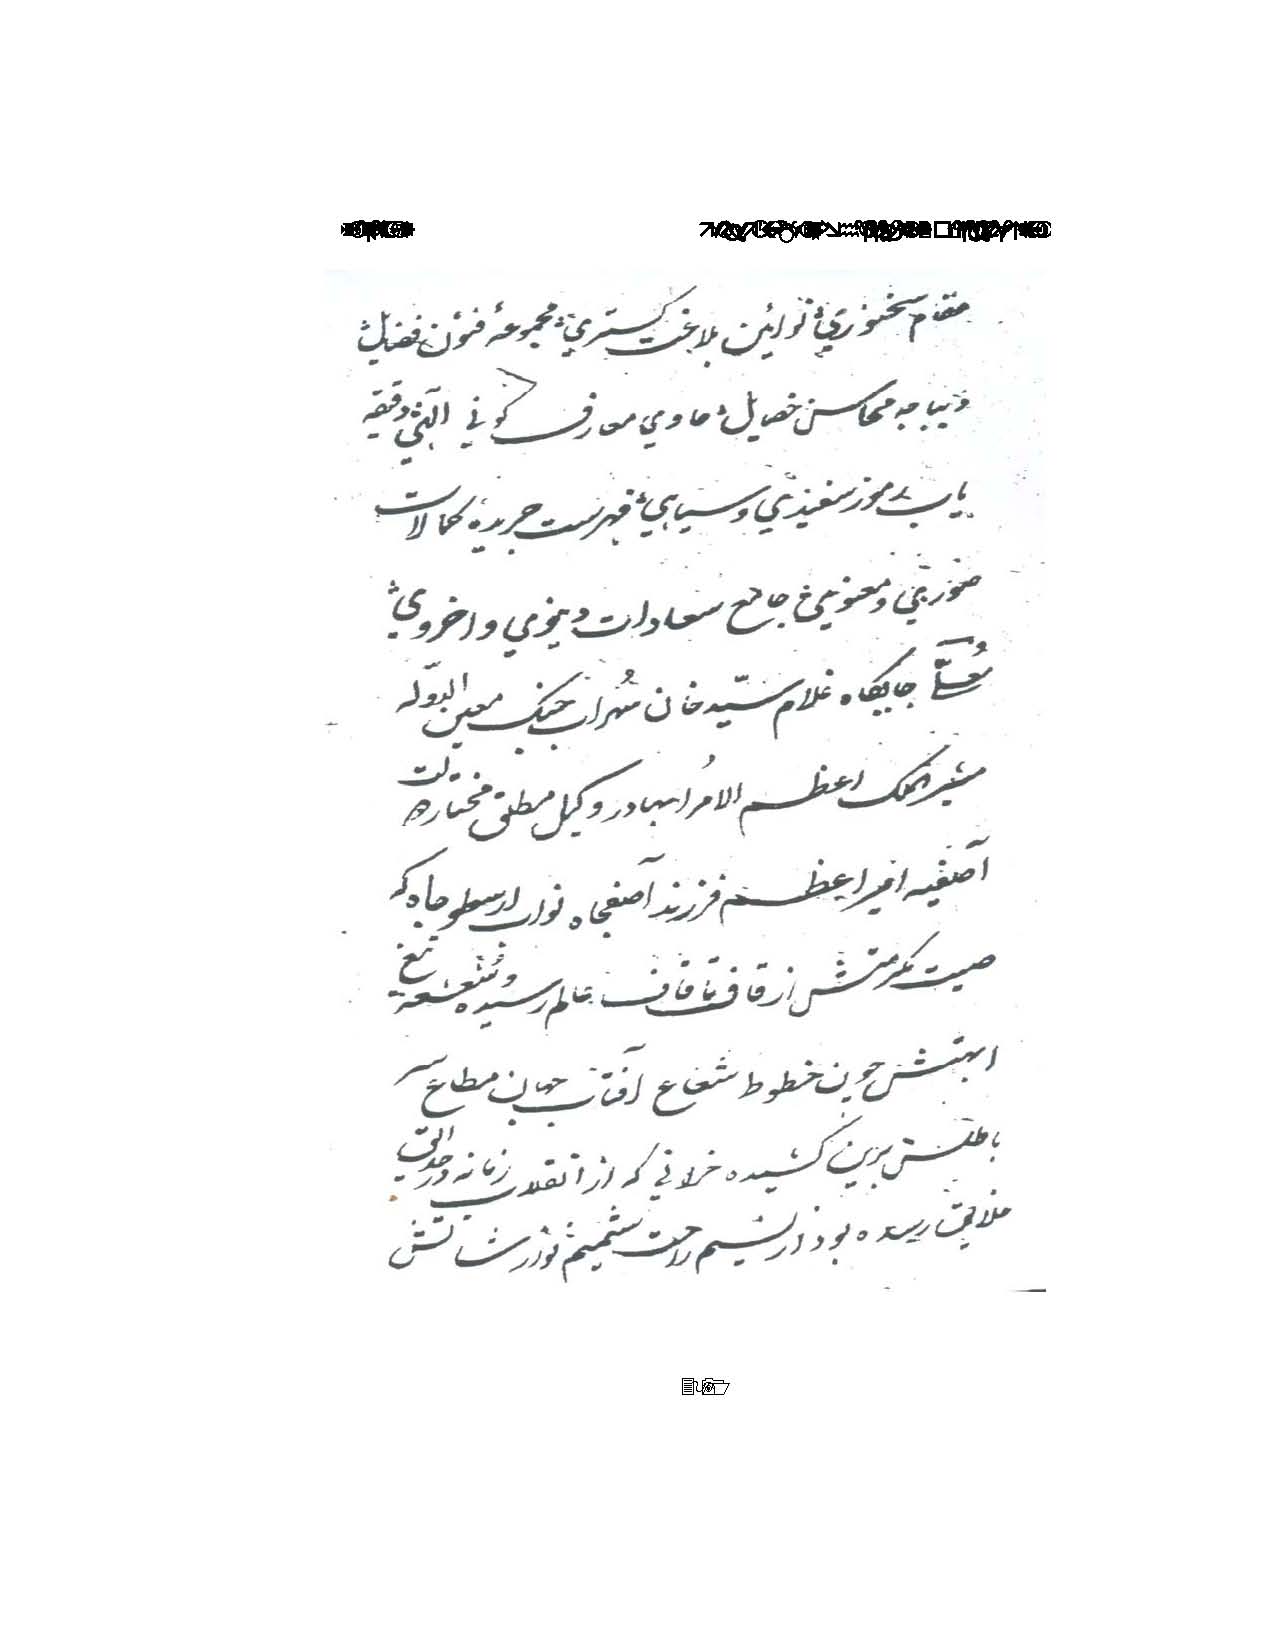 مقام سخنوری قوانین بلاغت گستری مجموعهٔ فنون فضایل
دیباچه محاسن خصایل حاوی معارف کونی الٰهی دقیقه
یاب رموز سفیدی و سیاهی فهرست جریده کمالات
صوری و معنوی جامع سعادات دنیوی و اخروی
معلّٰی جایگاه غلام سیّد خان سُهراب جنگ معین الدّوله
مشیر الملک اعظم الامُرا بهادر وکیل مطلق مختار دولت
آصفیه امیر اعظم فرزند آصفجاه نواب ارسطو جاه که
صیت مکرمتش از قاف تا قاف عالم رسیده و شعشعه تیغ
ابهتش چون خطوط شعاع آفتاب جهان مطاع سر
باطلش برین کشیده که از انقلاب زمانه در
رسیده بود از نسیم راحت شمیم نوازشاتش